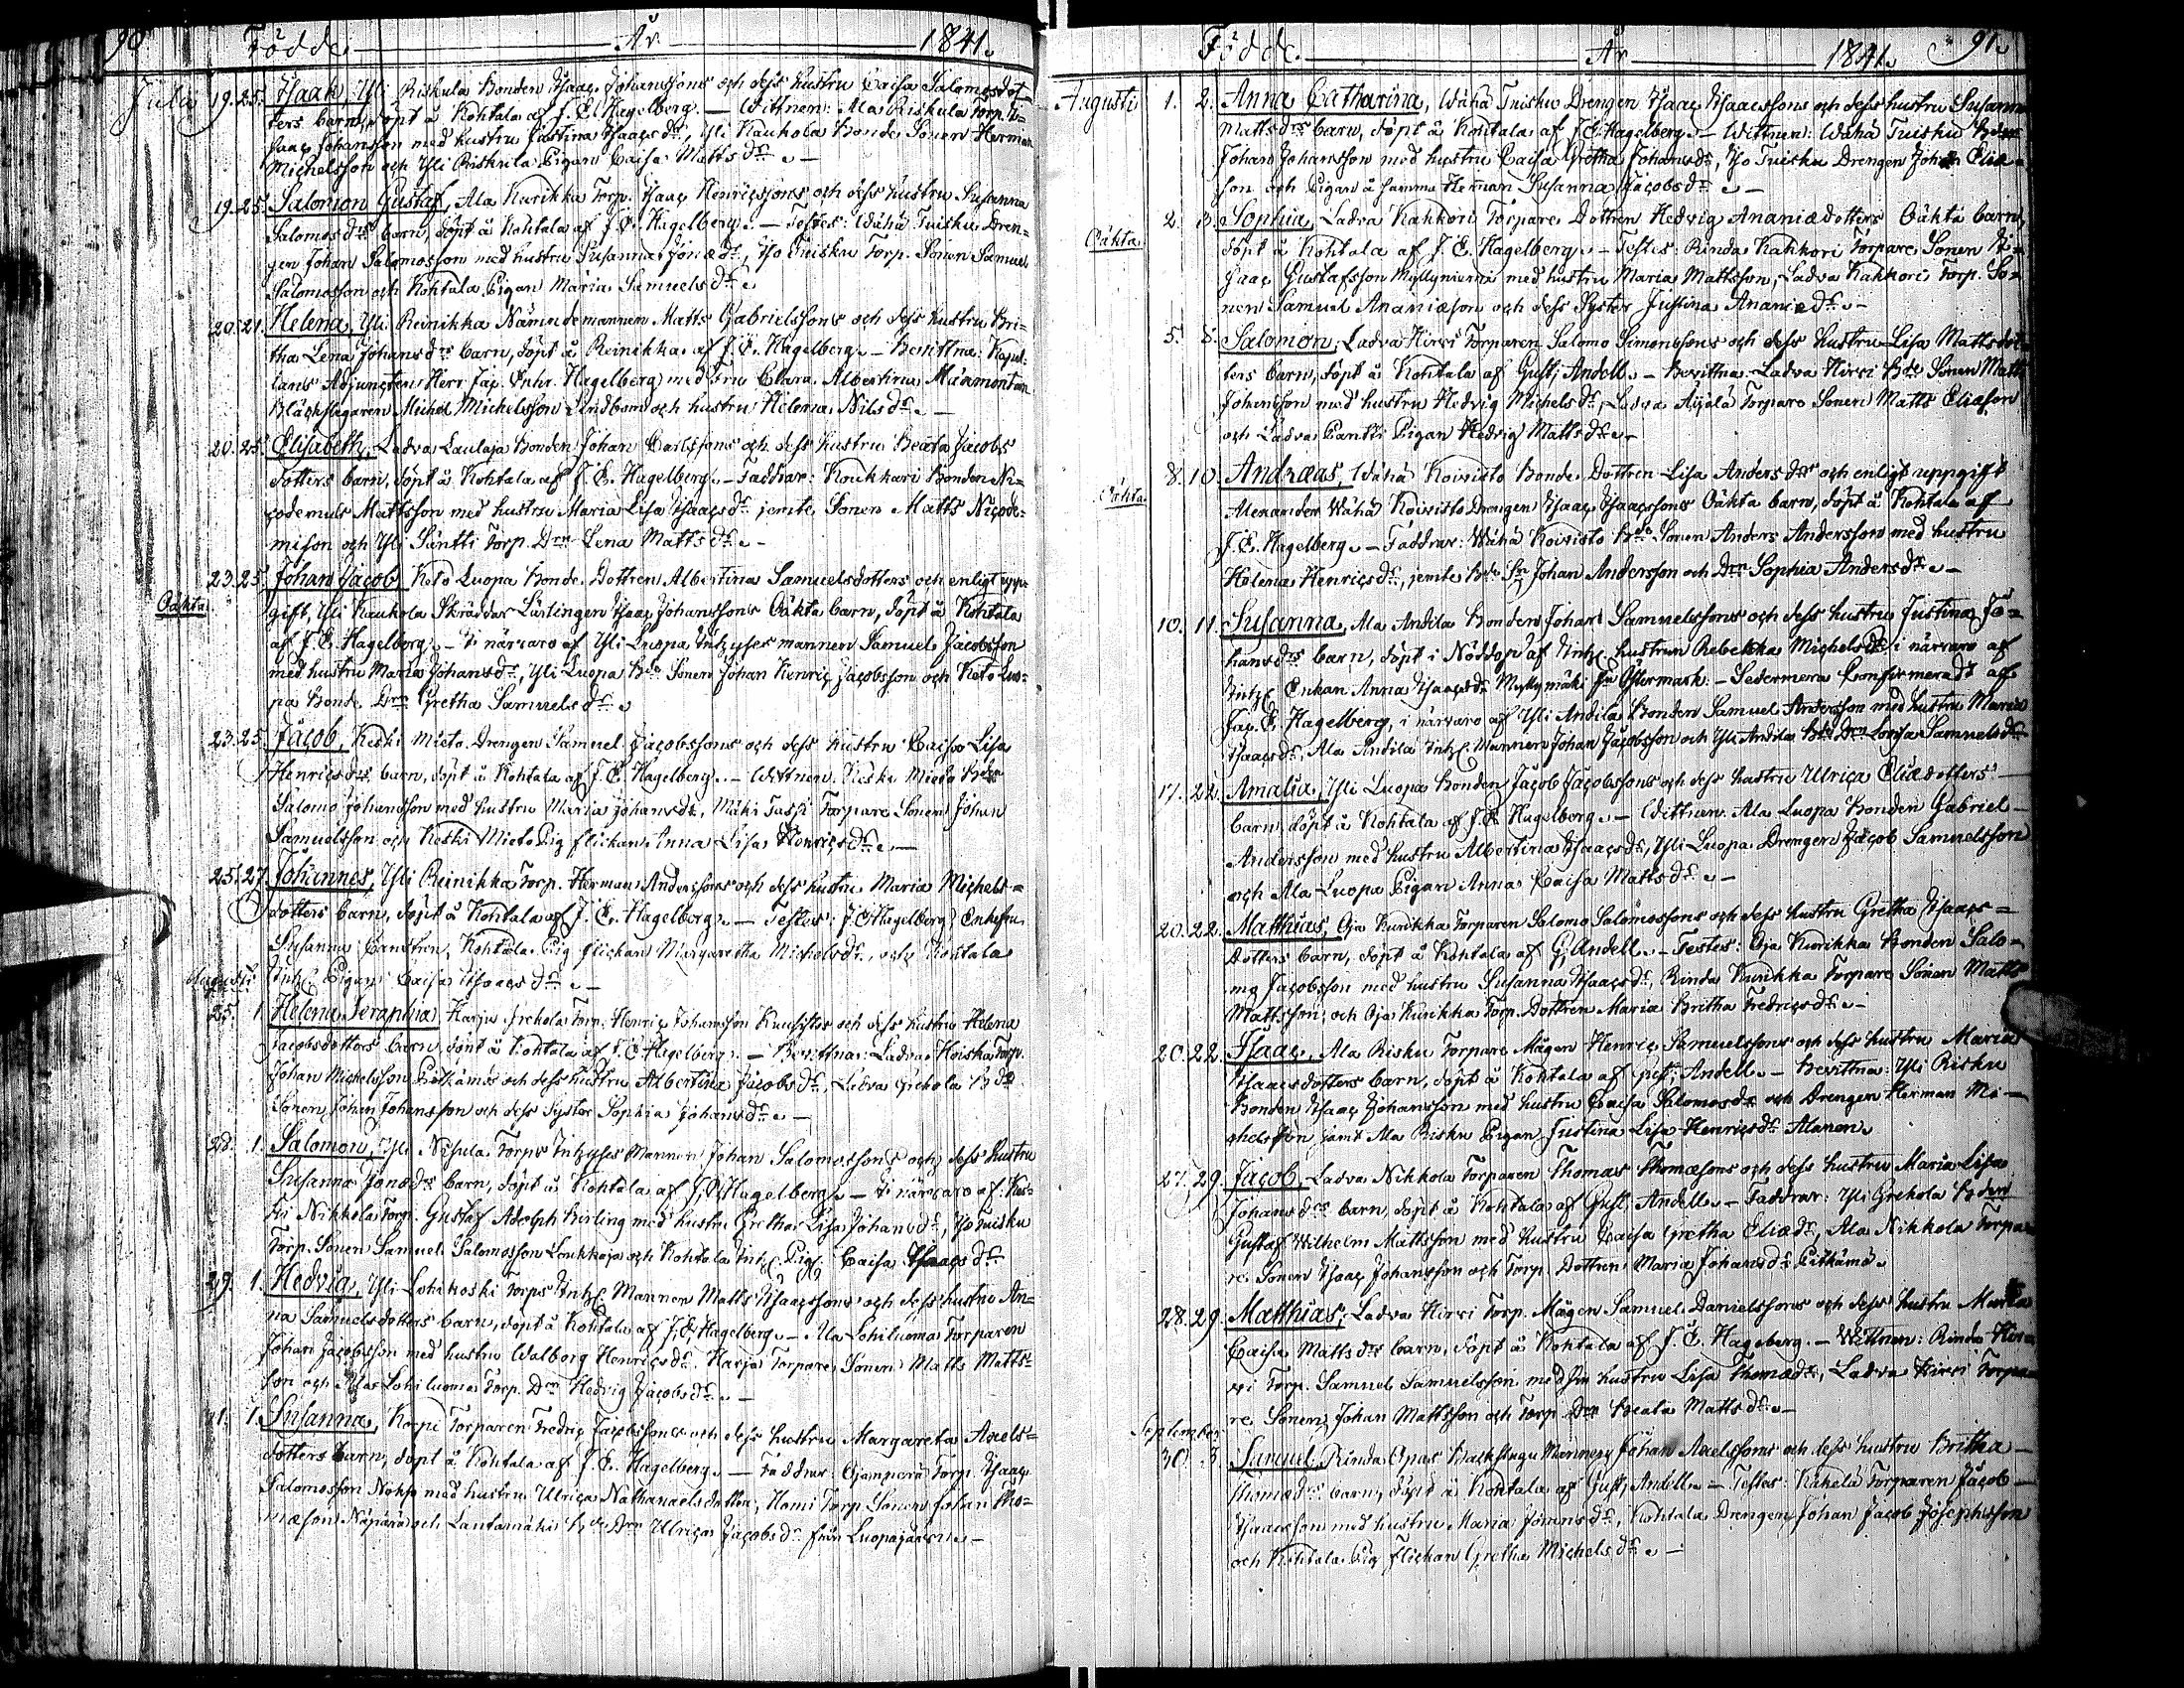 90. Födde År 1841.
Julii 19. 25. Isaak, Yli Riskula Bonden Isaac Johanssons och dess hustru Caisa Salomosdot
ters barn, döpt å Kohtala af J. E. Hagelberg. — Wittnen: Ala Riskula Torp. I-
saac Johansson med hustru Justina Isaacsdr, Yli Kauhola Bonde Sonen Herman
Michelsson och Yli Riskula Pigan Caisa Mattsdr. —
19. 25. Salomon Gustaf, Ala Kurikka Torp. Isaac Henricssons och dess hustru Susanna
Salomosdrs barn, döpt å Kohtala af J. E. Hagelberg. — Testes: Wähä Tuisku Dren-
gen Johan Salomosson med hustru Susanna Jonædr, Iso Tuisku Torp. Sonen Samuel
Salomosson och Kohtala Pigan Maria Samuelsdr.
20. 21. Helena, Yli Reinikka Nämndemannen Matts Gabrielssons och dess hustru Bri-
tha Lena Johansdrs barn, döpt å Reinikka af J. E. Hagelberg. — Bevittna: Kapel-
lans Adjuncten Herr Jac. Hagelberg med Fru Clara Albertina
Michel Michelsson Lindbom och hustru Helena Nilsdr. —
20. 25. Elisabeth, Ladva Laulaja Bonden Johan Carlssons och dess hustru Beata Jacobs
dotters barn, döpt å Kohtala af J. E. Hagelberg. — Faddrar: Koukkari Bonden Ni-
codemus Mattsson med hustru Maria Lisa Isaacsdr jemte Sonen Matts Nicode-
mison och Yli Säntti Torp. Drn Lena Mattsdr. —
23. 25. Johan Jacob Keto Luopa Bonde Dottren Albertina Samuelsdotters och enligt upp-
Oäkta gift, Yli Kauhola Skräddar Lärlingen Isaac Johanssons Oäkta barn, döpt å Kohtala
af J. E. Hagelberg. — I närvaro af Yli Luopa Inhyses mannen Samuel Jacobsson
med hustru Maria Johansdr, Yli Luopa Bde Sonen Johan Henric Jacobsson och Keto Luo-
pa Bonde Drn Gretha Samuelsdr.
23. 25. Jacob, Keski Mieto Drengen Samuel Jacobssons och dess hustru Caisa Lisa
Henricsdrs barn, döpt å Kohtala af J. E. Hagelberg. — Wittnen. Keski Mieto Bden
Salomo Johansson med hustru Maria Johansdr, Mäki Torpare Sonen Johan
Samuelsson och Keski Mieto Pig flickan Anna Lisa Henricsdr. —
25. 27. Johannes, Yli Reinikka Torp. Herman Anderssons och dess hustru Maria Michels-
dotters barn, döpt å Kohtala af J. E. Hagelberg. — Testes: J. E. Hagelberg, Enkefru
Susanna Kohtala Pig flickan Margaretha Michelsdr. och Kohtala
Augusti Inh. Pigan Caisa Isaacsdr. —
25. 1. Helena Seraphia Harju Grekola Torp. Henric Johansson och dess hustru Helena
Jacobsdotters barn, döpt å Kohtala af J. E. Hagelberg. — Bevittna: Ladva Torp.
Johan Michelsson Pitkämö och dess hustru Albertina Jacobsdr, Ladva Grekola Bde
Sonen Johan Johansson och dess Syster Sophia Johansdr. —
28. 1. Salomon, Yli Nisula Torps Inhyses Mannen Johan Salomossons och dess hustru
Susanna Jonædrs barn, döpt å Kohtala af J. E. Hagelberg. — I närvaro af
Nikkola Torp. Gustaf Adolph med hustru Gretha Lisa Johansdr, Iso Tuisku
Torp. Sonen Samuel Salomosson Loukkaja och Kohtala Inh. Pig. Caisa Isaacsdr
29. 1. Hedvig, Yli Lohikoski Torps Inh. Mannen Matts Isaacssons och dess hustru An-
na Samuelsdotters barn, döpt å Kohtala af J. E. Hagelberg. — Ala Lohiluoma Torparen
Johan Jacobsson med hustru Walborg Henricsdr. Harja Torpare Sonen Matts Matts-
son och Ala Lohiluoma Torp. Drn Hedvig Jacobsdr. —
31. 1. Susanna, Korpi Torparen Fredric Jacobssons och dess hustru Margareta Axels-
dotters barn, döpt å Kohtala af J. E. Hagelberg. — Faddrar: Torp. Isaac
Salomosson med hustru Ulrica Nathanaelsdotter, Torp. Sonen Johan Tho-
mæson och Lautamäki Bde Drn Ulrica Jacobsdr från Luopajärvi. —
Födde. År 1841. 91.
Augusti 1. 2. Anna Catharina, Wähä Tuisku Drengen Isaac Isaacssons och dess hustru Susanna
Mattsdrs barn, döpt å Kohtala af J. E. Hagelberg. — Wittnen: Wähä Tuisku Bden
Johan Johansson med hustru Caisa Gretha Johansdr, Iso Tuisku Drengen Johan Elia-
son och Pigan å samma Heman Susanna Jacobsdr. —
2. 3. Sophia, Ladva Kakkori Torpare Dottren Hedvig Ananiædotters Oäkta barn,
Oäkta döpt å Kohtala af J. E. Hagelberg. — Testes: Rinda Kakkori Torpare Sonen I-
saac Gustafsson Myllyniemi med hustru Maria Mattsson, Ladva Kakkori Torp. So-
nen Samuel Ananiæson och dess Syster Justina Ananiædr. —
5. 8. Salomon, Ladva Hirvi Torparen Salomo Simonssons och dess hustru Lisa Mattsdot-
ters barn, döpt å Kohtala af Gust; Andell. — Bevittna: Ladva Hirvi Bde Sonen Matts
Johansson med hustru Hedvig Michelsdr, Ladva Äijälä Torpare Sonen Matts Eliason
och Ladva Pantti Pigan Hedvig Mattsdr. —
8. 10. Andreas, Wähä Koivisto Bonde Dottren Lisa Andersdrs och enligt uppgift
Oäkta Alexander Wähä Koivisto Drengen Isaac Isaacssons Oäkta barn, döpt å Kohtala af
J. E. Hagelberg. — Faddrar: Wähä Koivisto Bde Sonen Anders Andersson med hustru
Helena Henricsdr, jemte Bde Sn Johan Andersson och Drn Sophia Andersdr. —
10. 11. Susanna, Ala Andila Bonden Johan Samuelssons och dess hustru Justina Jo-
hansdrs barn, döpt i Nöddop af Inh. hustrun Rebekka Michelsdr i närvaro af
Inh. Enkan Anna Isaacsdr Myllymäki fr. Östermark. — Sedermera Confirmeradt af
Jac. E. Hagelberg, i närvaro af Yli Andila Bonden Samuel Andersson med hustru Maria
Isaacsdr, Ala Andila Inh. Mannen Johan Jacobsson och Yli Andila Bde Drn Lovisa Samuelsdr
17. 22. Amalia, Yli Luopa Bonden Jacob Jacobssons och dess hustru Ulrica Eliædotters
barn, döpt å Kohtala af J. E. Hagelberg. — Wittnen: Ala Luopa Bonden Gabriel
Andersson med hustru Albertina Isaacsdr, Yli Luopa Drengen Jacob Samuelsson
och Ala Luopa Pigan Anna Caisa Mattsdr. —
20. 22. Matthias, Oja Kurikka Torparen Salomo Salomossons och dess hustru Gretha Isaacs-
dotters barn, döpt å Kohtala af G. Andell. — Testes: Oja Kurikka Bonden Salo-
mo Jacobsson med hustru Susanna Isaacsdr, Rinda Kurikka Torpare Sonen Matts
Mattsson, och Oja Kurikka Torp. Dottren Maria Britha Fredricsdr. —
20. 22. Isaac, Ala Risku Torpare Mågen Henric Samuelssons och dess hustru Maria
Isaacsdotters barn, döpt å Kohtala af Gust; Andell. — Bevittna: Yli Risku
Bonden Isaac Johansson med hustru Caisa Salomosdr och Drengen Herman Mi-
chelsson jemt Ala Risku Pigan Justina Lisa Henricsdr Alanen.
27. 29. Jacob, Ladva Nikkola Torparen Thomas Thomæsons och dess hustru Maria Lisa
Johansdrs barn, döpt å Kohtala af Gust; Andell. — Faddrar: Yli Grekola Bden
Gustaf Wilhelm Mattsson med Hustru Caisa Gretha Eliædr, Ala Nikkola Torpa-
re Sonen Isaac Johansson och Torp. Dottren Maria Johansdr Pitkämö.
28. 29. Matthias, Ladva Hirvi Torp. Mågen Samuel Danielssons och dess hustru Maria
Caisa Mattsdrs barn, döpt å Kohtala af J. E. Hagelberg. — Wittnen: Rinda Hir-
vi Torp. Samuel Samuelsson med sin hustru Lisa Thomædr, Ladva Hirvi Torpa-
re Sonen Johan Mattsson och Torp Drn Beata Mattsdr. —
September
30. 3. Samuel, Rinda Opas Backstugu Mannen Johan Axelssons och dess hustru Britha
Thomædrs barn, döpt å Kohtala af Gust; Andell. — Testes: Käkelä Torparen Jacob
Isaacsson med hustru Maria Johansdr, Kohtala Drengen Johan Jacob Josephsson
och Kohtala Pig flickan Gretha Michelsdr. —